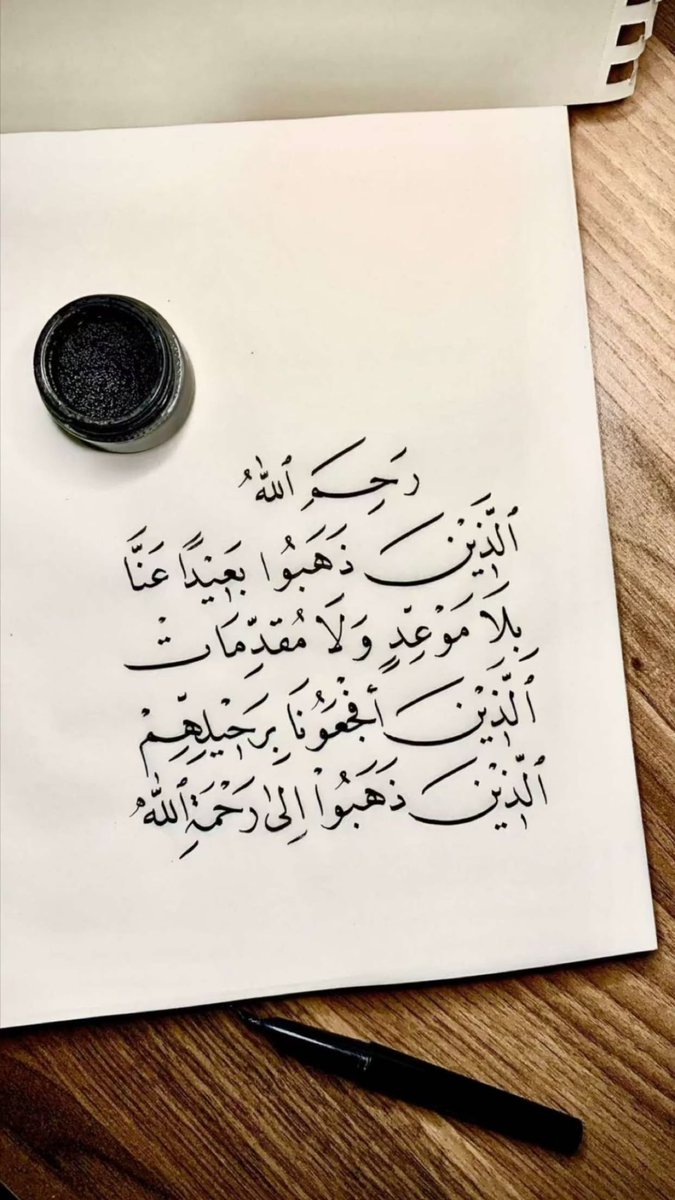 رَحِمَ ٱللّٰهُ
ٱلَّذِيْنَ ذَهَبُوا بَعِيْدًا عَنَّا
بِلَا مَوْعِدٍ وَلَا مُقدِّمَاتْ
ٱلَّذِيْنَ أفْجَعَوُنَا بِرَحِيْلِهِّمْ
ٱلَّذِيْنَ ذَهَبُواْ إِلىٰ رَحْمَةِ ٱللّٰهْ